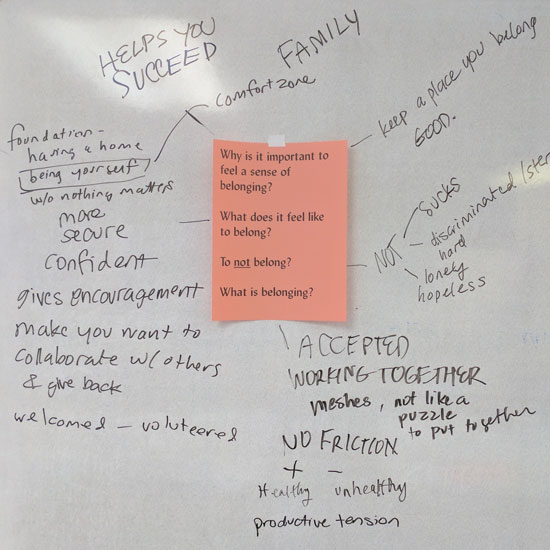 HELPS YOU
SUCCEED
FAMILY
comfort zone
keep a place you belong
GOOD.
foundation -
having a home
being yourself
w/o nothing matters
more
secure
confident
gives encouragement
make you want to
collaborate w/ others
& give back
welcomed - voluteered
Why is it important to
feel a sense of
belonging?
What does it feel like
to belong?
To not belong?
What is belonging?
NOT
SUCKS
discriminated
hard
lonely
hopeless
ACCEPTED
WORKING TOGETHER
meshes, not like a
puzzle
to put together
NO FRICTION
+ -
Healthy unhealthy
productive tension